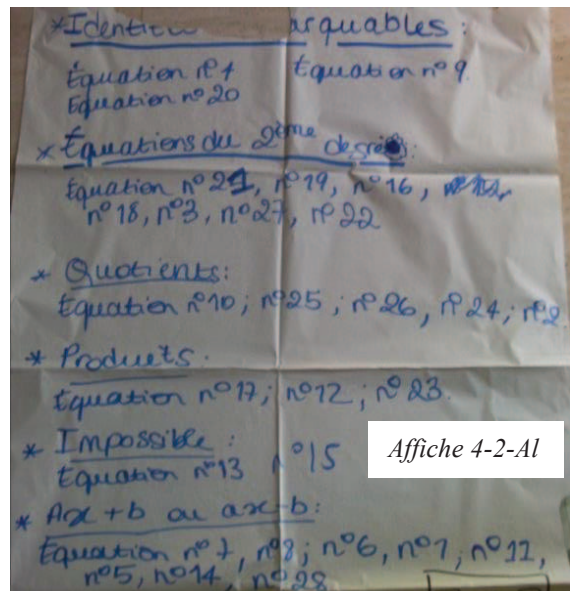 *Identit arquables :
Équation n°4 Équation n°9
Équation n°20
* Équations du 2ème degré :
Équation n°21, n°19, n°16,
n°18, n°3, n°27, n°22
* Quotients :
Équation n°10 ; n°25 ; n°26, n°24 ; n°2
* Produits :
Équation n°17 ; n°12 ; n°23
* Impossible :
Équation n°13 n°15
Affiche 4-2-Al
* Ax + b ou ax-b :
Équation n°7, n°8 ; n°6, n°1, n°11,
n°5, n°14, n°28